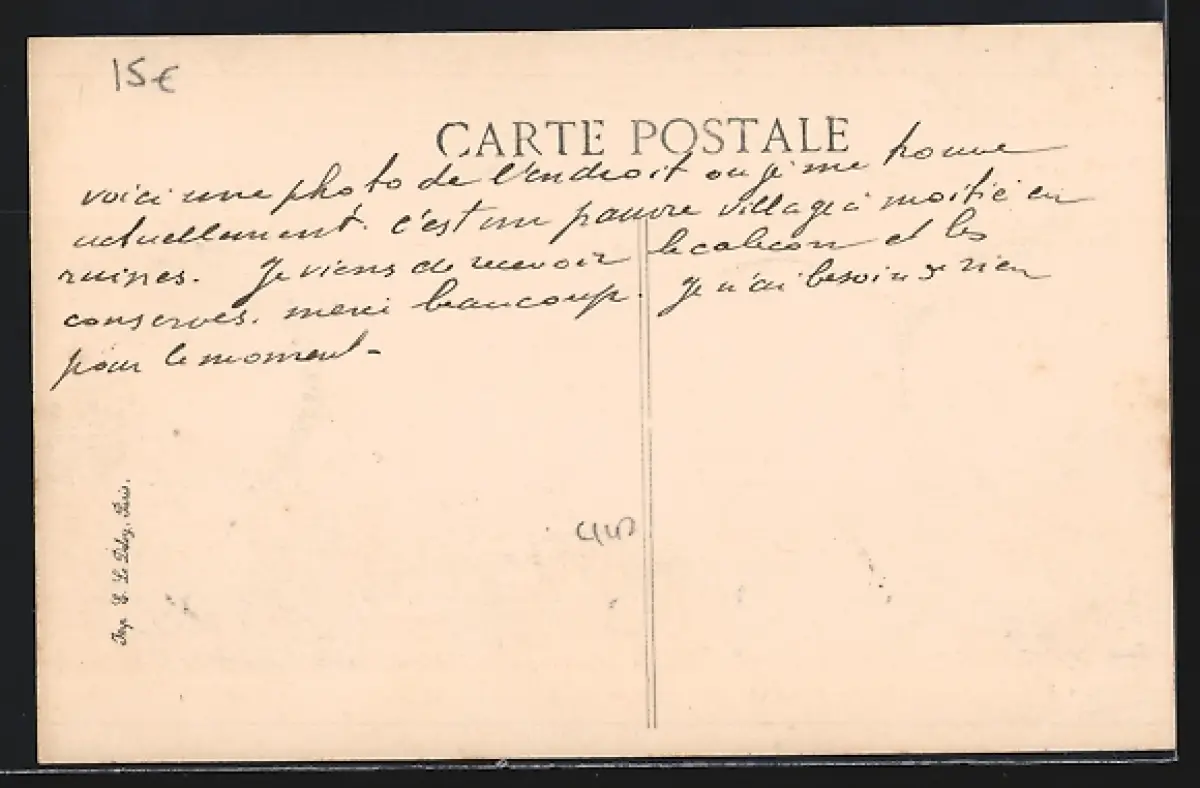 15€
CARTE POSTALE
voici une photo de l'endroit ou je me trouve
actuellement. c'est un pauvre village à moitié en
ruines. Je viens de recevoir le caleçon et les
conserves. merci beaucoup. Je n'ai besoin de rien
pour le moment -
Imp. E. Le Deley, Paris.